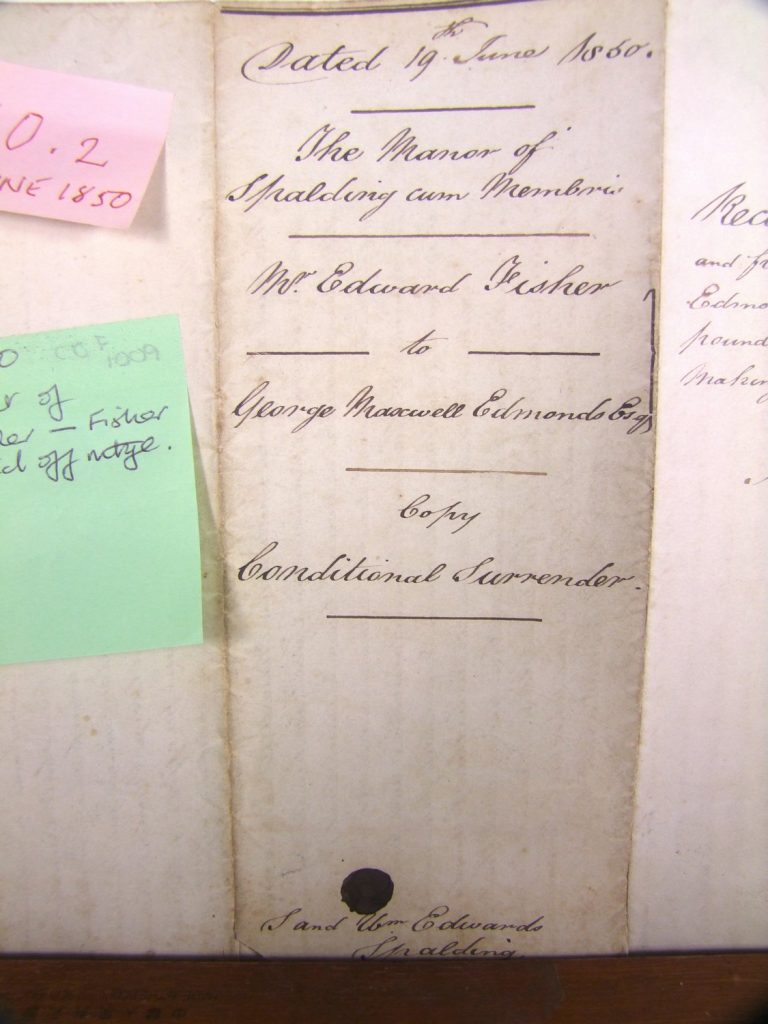 Dated 19th June 1850.
The Manor of
Spalding cum Membris
Mr. Edward Fisher
to
George Maxwell Edmonds Esq
Copy
Conditional Surrender.
S and Wm Edwards
Spalding
O. 2
NE 1850
COF
1009
r of
er — Fisher
d off mtge.
Rec
and f
Edmo
pound
Makin